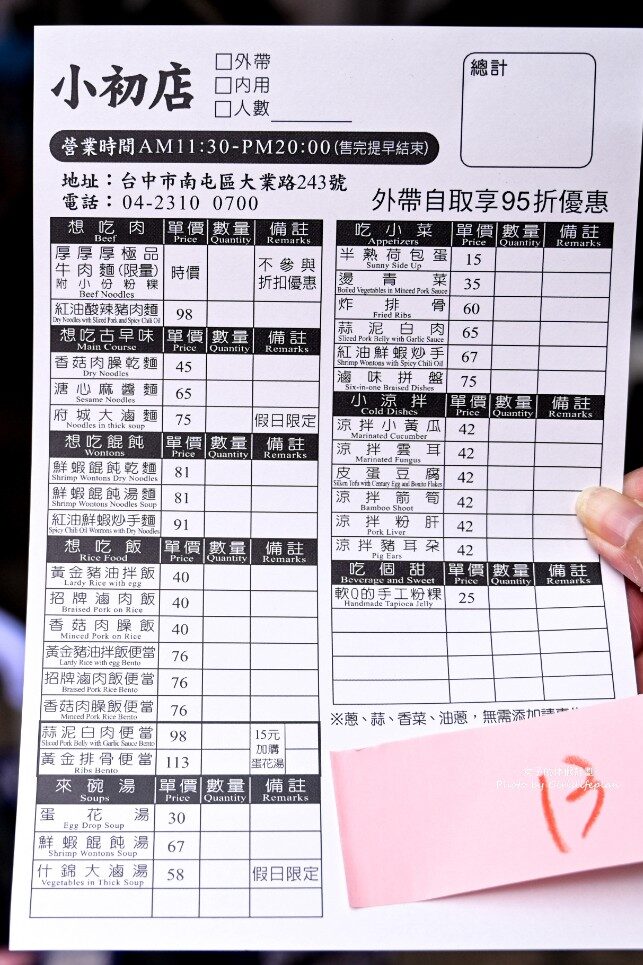 小初店
□外帶
□內用
□人數
總計
營業時間AM11:30-PM20:00(售完提早結束)
地址：台中市南屯區大業路243號
電話：04-2310 0700
外帶自取享95折優惠
想吃肉 單價 數量 備註
Beef Price Quantity Remarks
厚厚厚極品
牛肉麵(限量) 時價 不參與
附小份粉粿 折扣優惠
Beef Noodles
紅油酸辣豬肉麵 98
Dry Noodles with Sliced Pork and Spicy Chili Oil
想吃古早味 單價 數量 備註
Main Course Price Quantity Remarks
香菇肉臊乾麵 45
Dry Noodles
溏心麻醬麵 65
Sesame Noodles
府城大滷麵 75 假日限定
Noodles in thick soup
想吃餛飩 單價 數量 備註
Wontons Price Quantity Remarks
鮮蝦餛飩乾麵 81
Shrimp Wontons Dry Noodles
鮮蝦餛飩湯麵 81
Shrimp Wontons Noodles Soup
紅油鮮蝦炒手麵 91
Spicy Chili Oil Wontons with Dry Noodles
想吃飯 單價 數量 備註
Rice Food Price Quantity Remarks
黃金豬油拌飯 40
Lardy Rice with egg
招牌滷肉飯 40
Braised Pork on Rice
香菇肉臊飯 40
Minced Pork on Rice
黃金豬油拌飯便當 76
Lardy Rice with egg Bento
招牌滷肉飯便當 76
Braised Pork Rice Bento
香菇肉臊飯便當 76
Minced Pork Rice Bento
蒜泥白肉便當 98 15元
Sliced Pork Belly with Garlic Sauce Bento 加購
黃金排骨便當 113 蛋花湯
Ribs Bento
來碗湯 單價 數量 備註
Soups Price Quantity Remarks
蛋花湯 30
Egg Drop Soup
鮮蝦餛飩湯 67
Shrimp Wontons Soup
什錦大滷湯 58 假日限定
Vegetables in Thick Soup
吃小菜 單價 數量 備註
Appetizers Price Quantity Remarks
半熟荷包蛋 15
Sunny Side Up
燙青菜 35
Boiled Vegetables in Minced Pork Sauce
炸排骨 60
Fried Ribs
蒜泥白肉 65
Sliced Pork Belly with Garlic Sauce
紅油鮮蝦炒手 67
Shrimp Wontons with Spicy Chili Oil
滷味拼盤 75
Six-in-one Braised Dishes
小涼拌 單價 數量 備註
Cold Dishes Price Quantity Remarks
涼拌小黃瓜 42
Marinated Cucumber
涼拌雲耳 42
Marinated Fungus
皮蛋豆腐 42
Silken Tofu with Century Egg and Bonito Flakes
涼拌箭筍 42
Bamboo Shoot
涼拌粉肝 42
Pork Liver
涼拌豬耳朵 42
Pig Ears
吃個甜 單價 數量 備註
Beverage and Sweet Price Quantity Remarks
軟Q的手工粉粿 25
Handmade Tapioca Jelly
※蔥、蒜、香菜、油蔥，無需添加請
Photo by
13